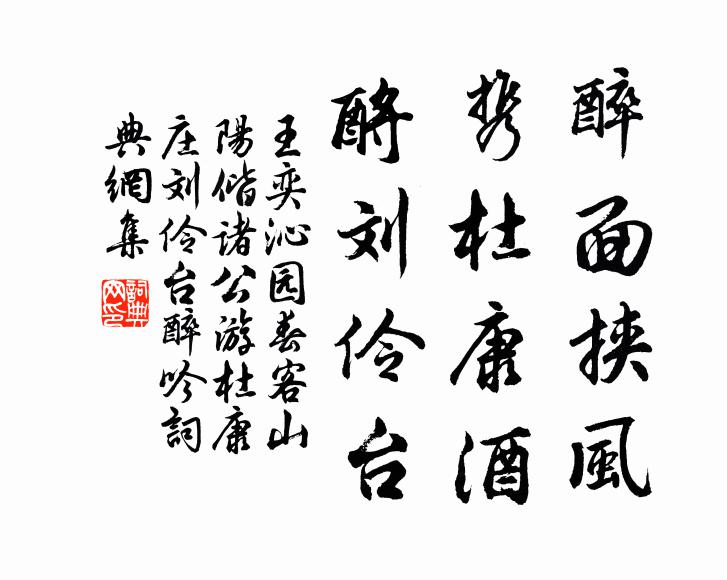 醉面挾風
携杜康酒
酹刘伶台
王奕沁园春客山
陽偕诸公游杜康
庄刘伶台醉吟詞
典網集
詞典
网印